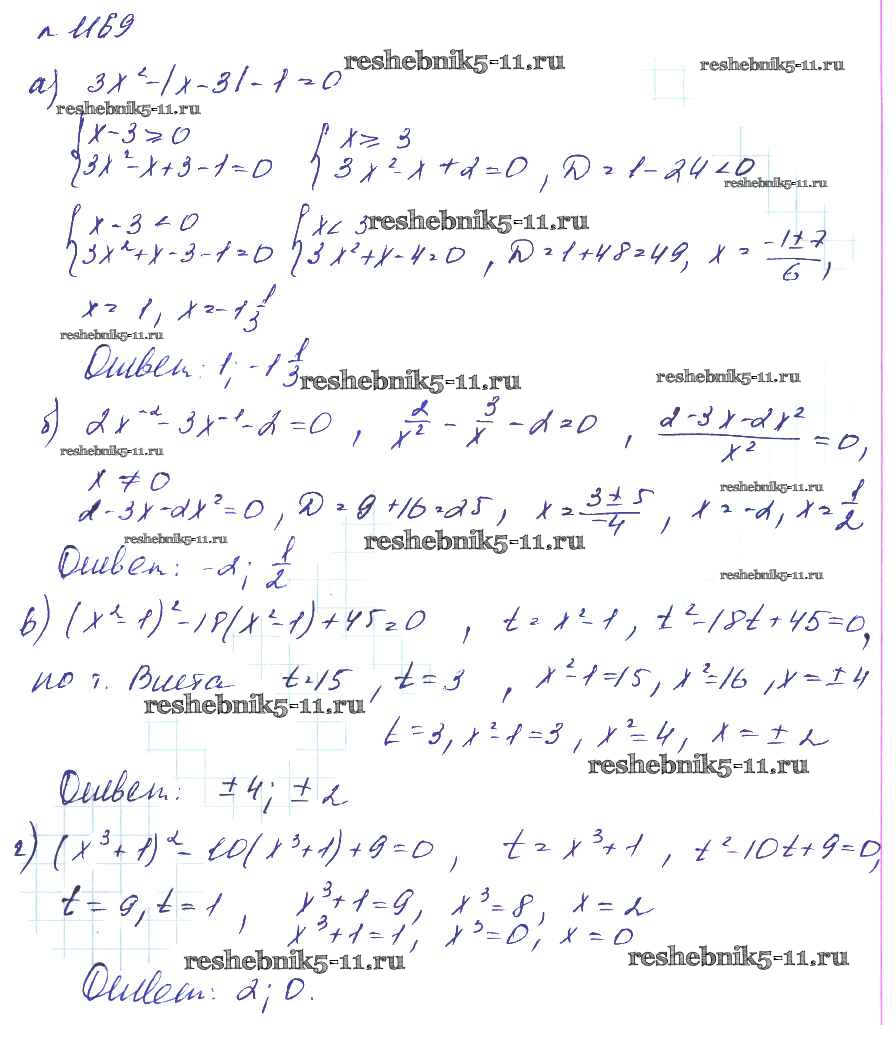 п. 1169
reshebnik5-11.ru
reshebnik5-11.ru
а) 3x² - |x - 3| - 1 = 0
reshebnik5-11.ru
{ x - 3 ≥ 0 { x ≥ 3
{ 3x² - x + 3 - 1 = 0 { 3x² - x + 2 = 0 , D = 1 - 24 < 0
reshebnik5-11.ru
{ x - 3 < 0 { x < 3 reshebnik5-11.ru
{ 3x² + x - 3 - 1 = 0 { 3x² + x - 4 = 0 , D = 1 + 48 = 49, x = (-1 ± 7)/6 ,
x = 1, x = -1 1/3
reshebnik5-11.ru
Ответ: 1; -1 1/3
reshebnik5-11.ru
reshebnik5-11.ru
б) 2x⁻² - 3x⁻¹ - 2 = 0 , 2/x² - 3/x - 2 = 0 , (2 - 3x - 2x²)/x² = 0,
reshebnik5-11.ru
x ≠ 0
reshebnik5-11.ru
2 - 3x - 2x² = 0 , D = 9 + 16 = 25, x = (3 ± 5)/-4 , x = -2, x = 1/2
reshebnik5-11.ru reshebnik5-11.ru
Ответ: -2; 1/2
reshebnik5-11.ru
в) (x² - 1)² - 18(x² - 1) + 45 = 0 , t = x² - 1 , t² - 18t + 45 = 0,
по т. Виета t = 15 , t = 3 , x² - 1 = 15, x² = 16 , x = ± 4
reshebnik5-11.ru
t = 3, x² - 1 = 3 , x² = 4, x = ± 2
reshebnik5-11.ru
Ответ: ± 4; ± 2
г) (x³ + 1)² - 10(x³ + 1) + 9 = 0 , t = x³ + 1 , t² - 10t + 9 = 0,
t = 9, t = 1 , x³ + 1 = 9, x³ = 8, x = 2
x³ + 1 = 1, x³ = 0, x = 0
reshebnik5-11.ru reshebnik5-11.ru
Ответ: 2; 0.